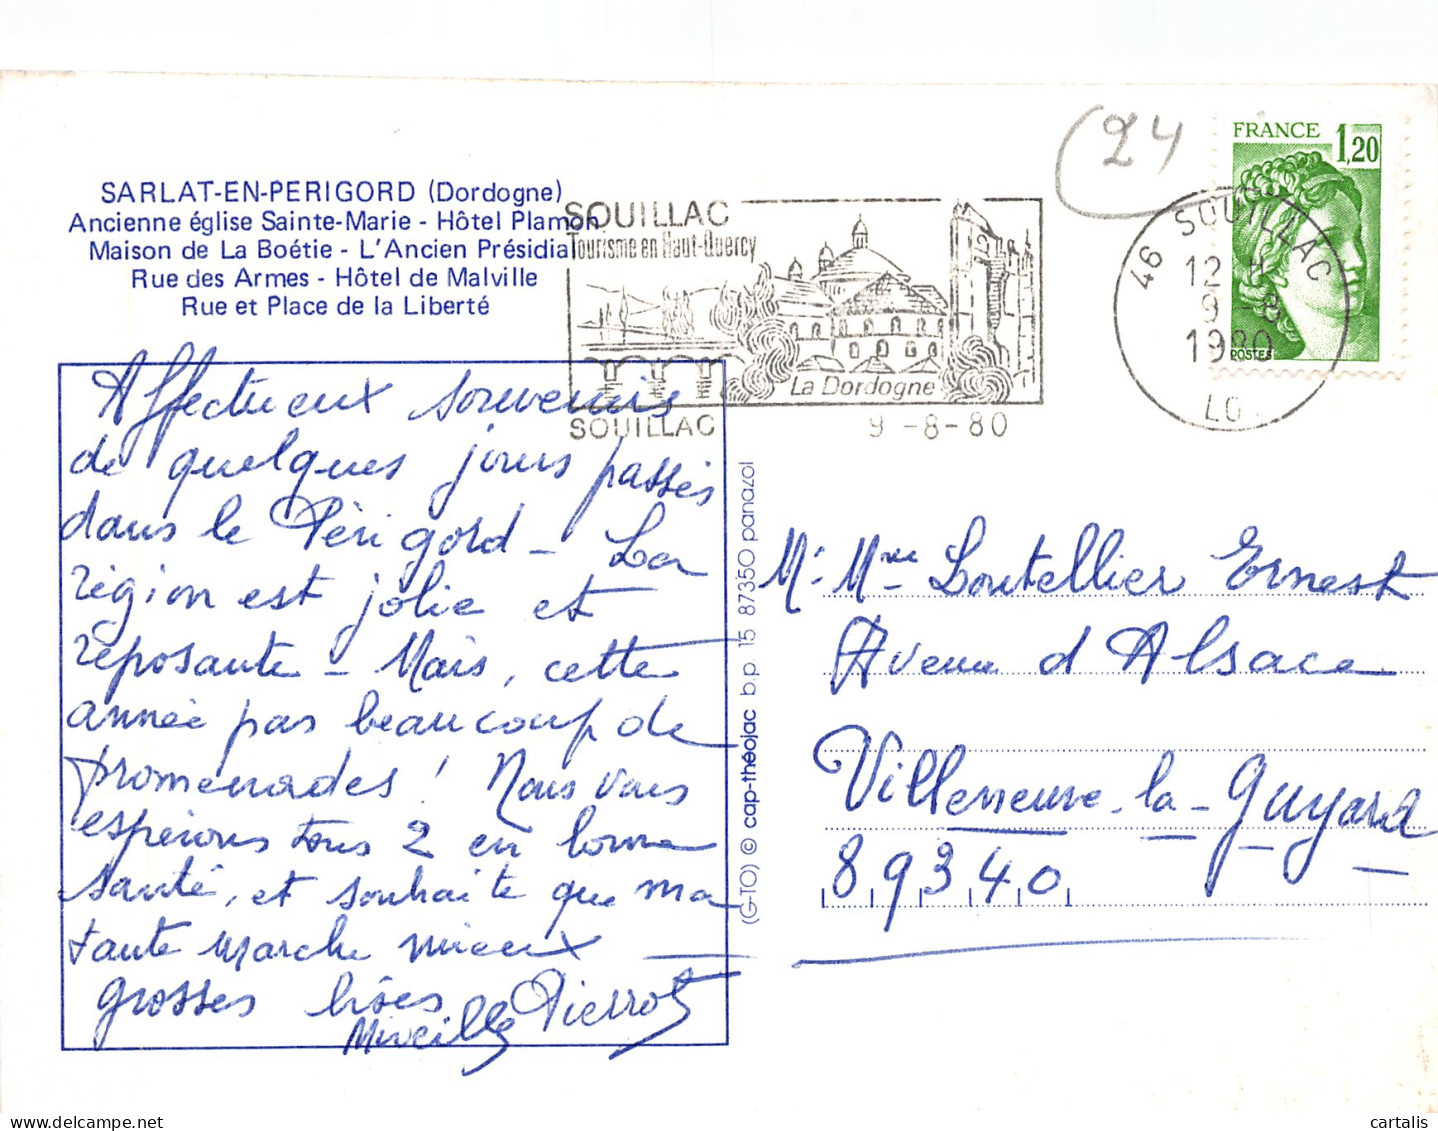 SARLAT-EN-PERIGORD (Dordogne)
Ancienne église Sainte-Marie - Hôtel Plamon
Maison de La Boétie - L'Ancien Présidial
Rue des Armes - Hôtel de Malville
Rue et Place de la Liberté
SOUILLAC
Tourisme en Haut-Quercy
La Dordogne
SOUILLAC
9-8-80
24
FRANCE 1,20
POSTES
46 SOUILLAC
12 H
9-8
1980
LO
Affectueux souvenirs
de quelques jours passés
dans le Périgord - La
région est jolie et
reposante - Mais, cette
année pas beaucoup de
promenades ! Nous vous
espérons tous 2 en bonne
santé, et souhaite que ma
tante marche mieux
grosses bises Pierrot
Mireille
(G-TO) © cap-théojac b.p 15 87350 panazol
Mr Mme Boutellier Ernest
Avenue d'Alsace
Villeneuve-la-Guyard
89340
cartalis